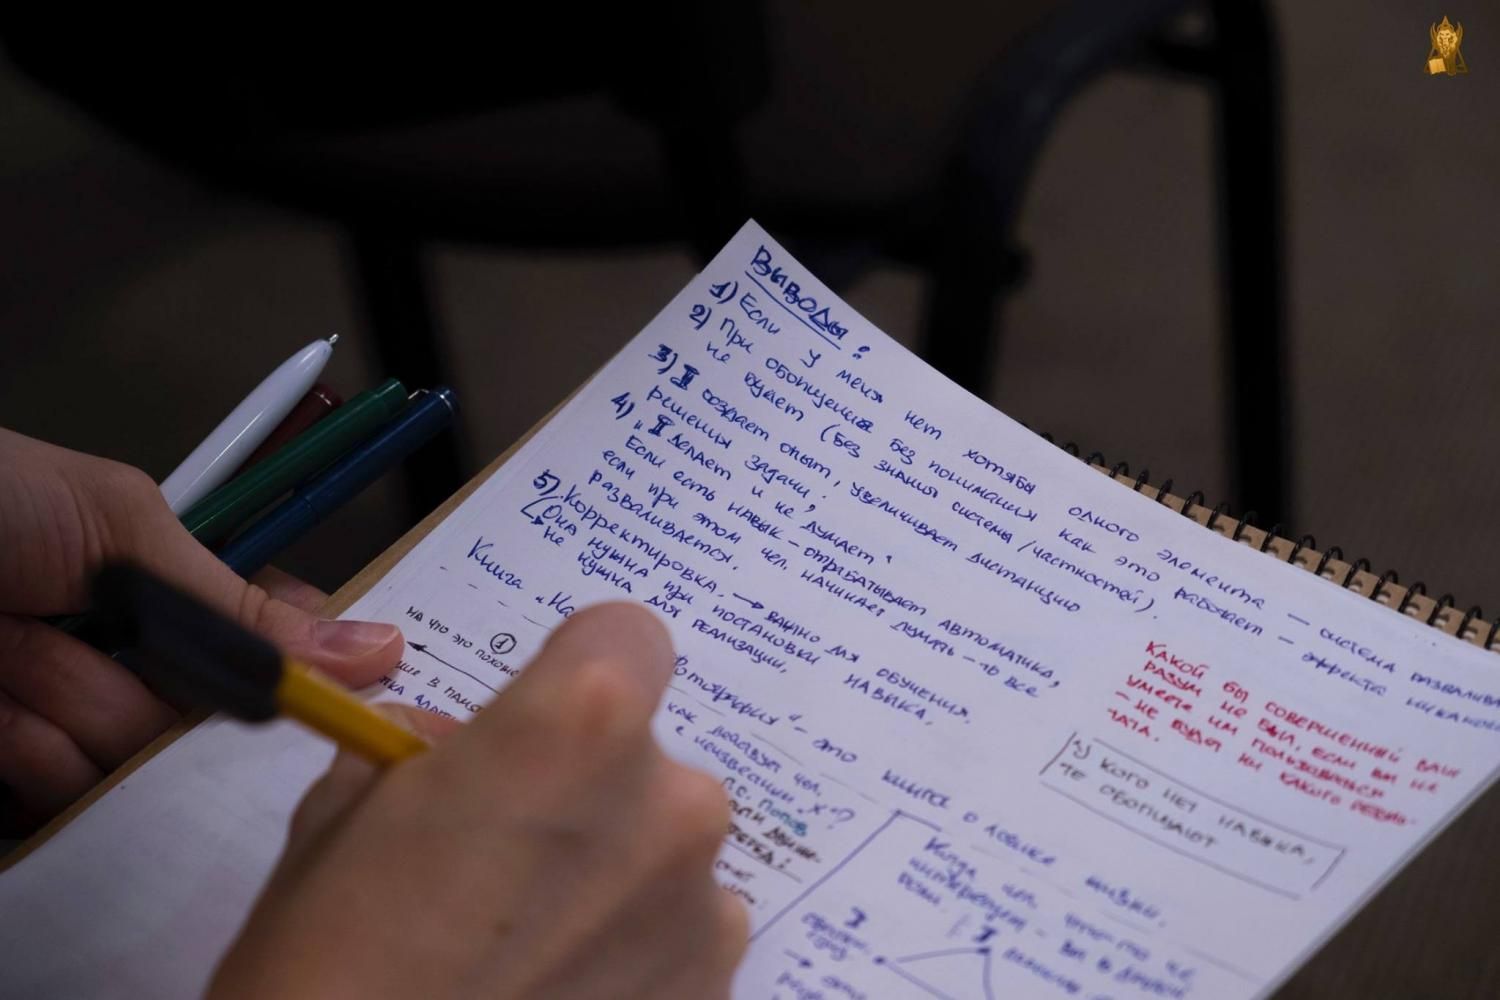 Выводы:
1) Если у меня нет хотябы одного элемента — система развалива
2) При обобщении без понимания как это работает — эффекта никакого
не будет (без знания системы/частностей).
3) I создаёт опыт, увеличивает дистанцию
решения задачи;
4) "I делает и не думает".
Если есть навык — отрабатывает автоматика,
если при этом чел. начинает думать — то все
разваливается.
5) Корректировка. → важно для обучения.
Она нужна при постановки навыка,
не нужна для реализации.
Книга "На
Фотография" — это книга о логике жизни.
на что это похоже
1
как действует чел.
с неизвестным "x"?
П.С. Попов
КАКОЙ БЫ СОВЕРШЕННЫЙ ВАШ
РАЗУМ НЕ БЫЛ, ЕСЛИ ВЫ НЕ
УМЕЕТЕ ИМ ПОЛЬЗОВАТЬСЯ
— НЕ БУДЕТ НИ КАКОГО РЕЗУЛЬ-
ТАТА.
"У КОГО НЕТ НАВЫКА,
ТЕ ОБОБЩАЮТ
Когда чел. что-то не
интересует — он в другой
I